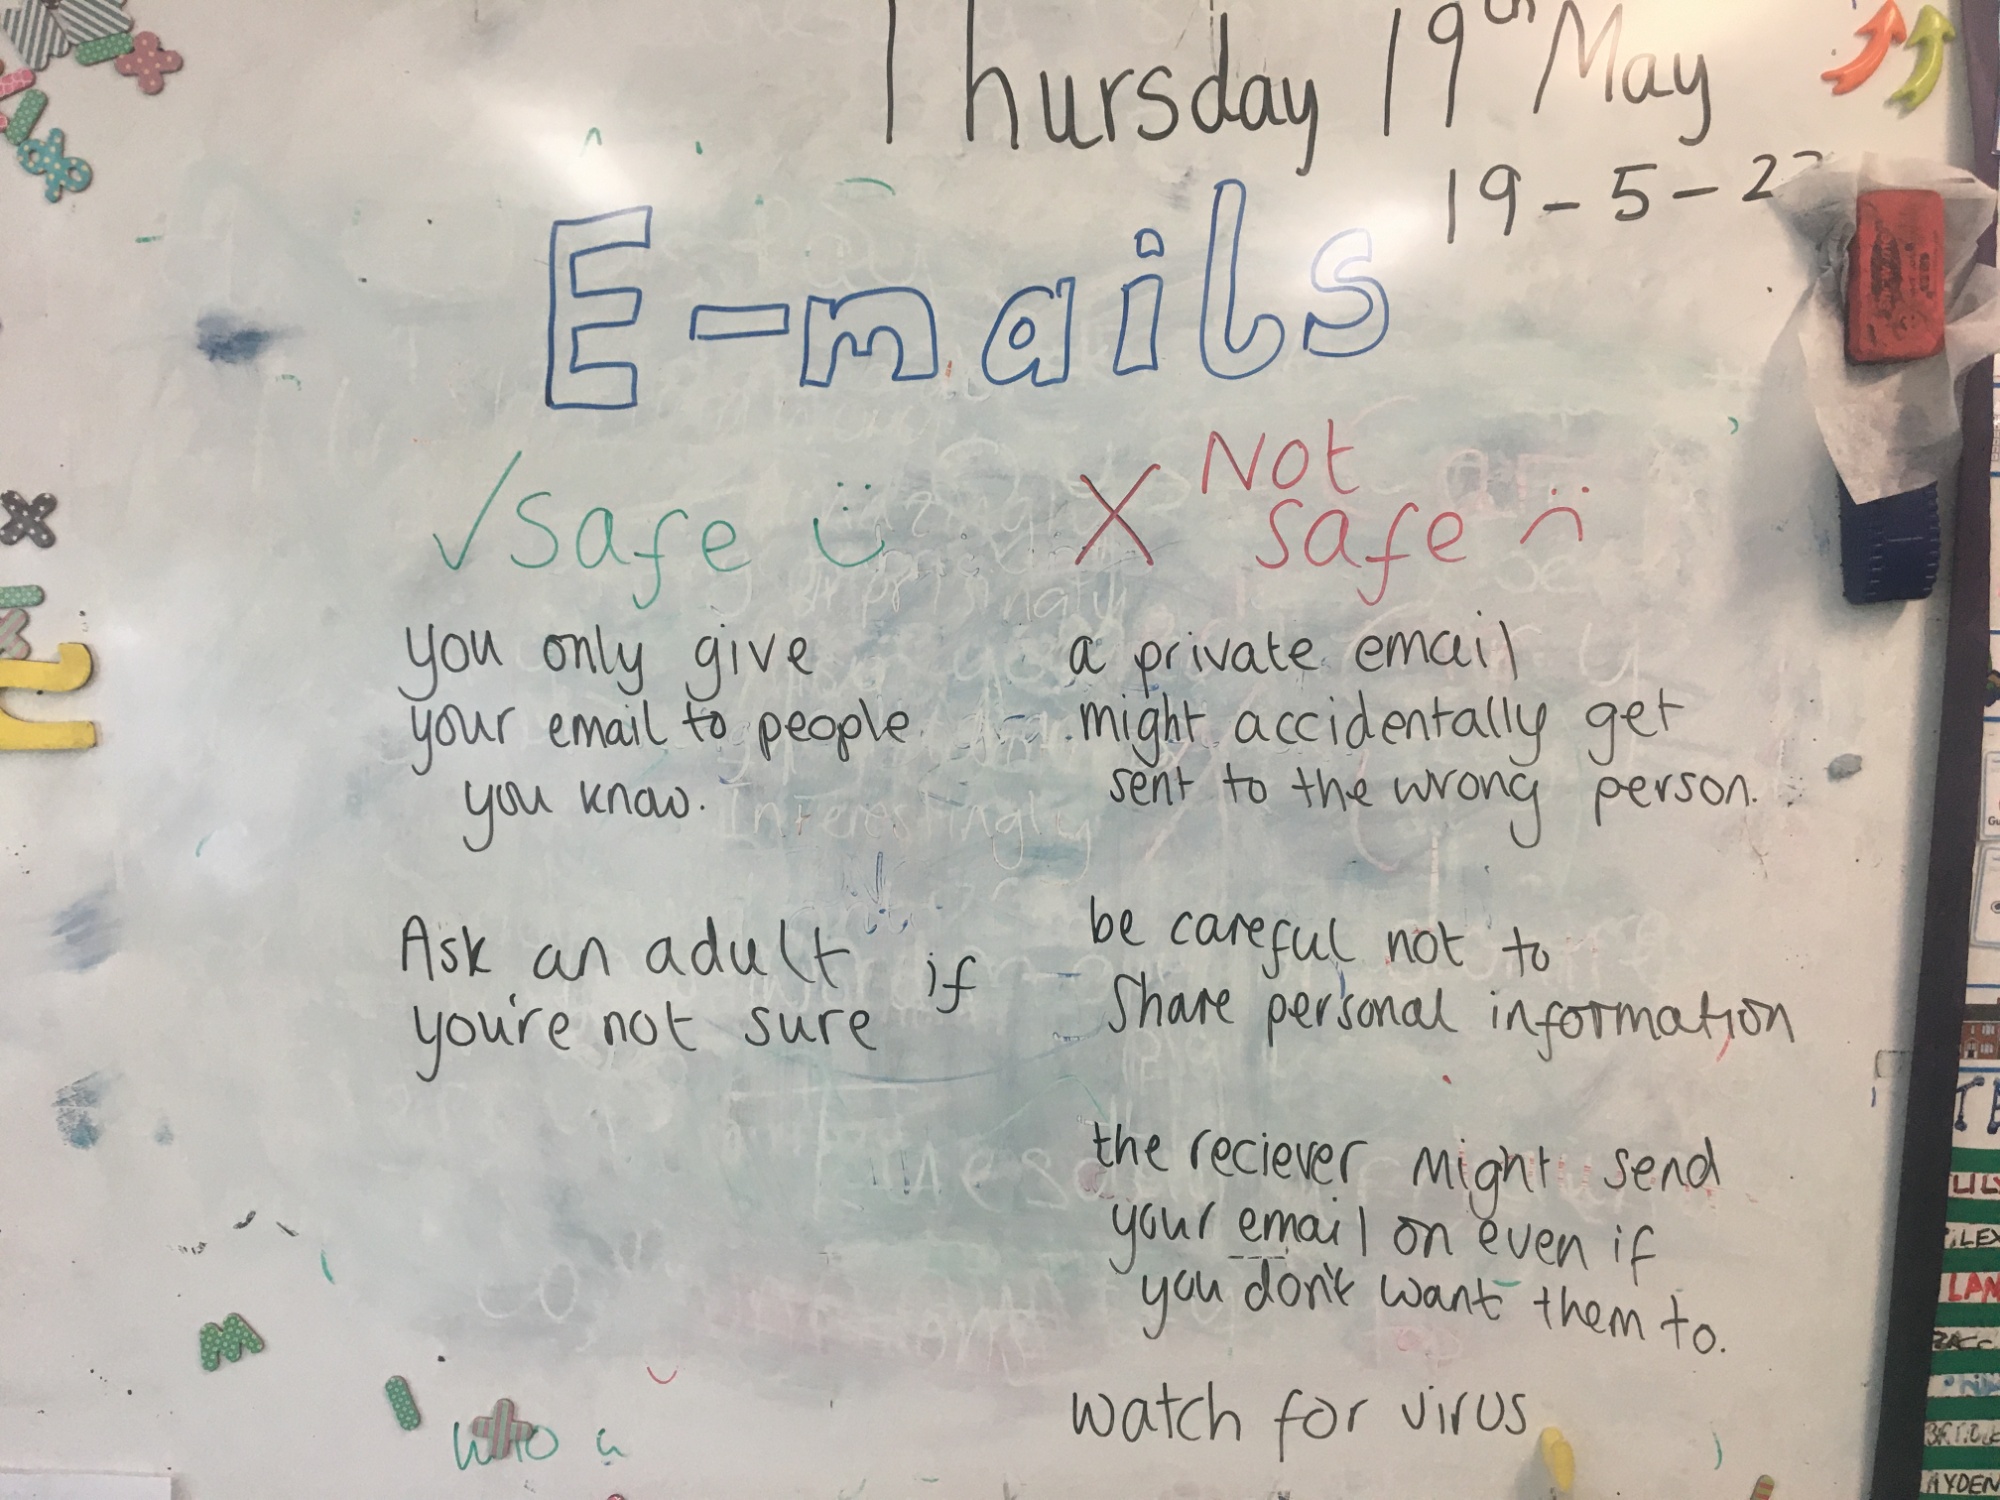 Thursday 19th May
19-5-22
E-mails
✓ Safe
X Not
safe
you only give
your email to people
you know.
Ask an adult if
you're not sure
a private email
might accidentally get
sent to the wrong person.
be careful not to
Share personal information
the reciever might send
your email on even if
you don't want them to.
watch for virus
who
Interestingly
LAN
AYDEN